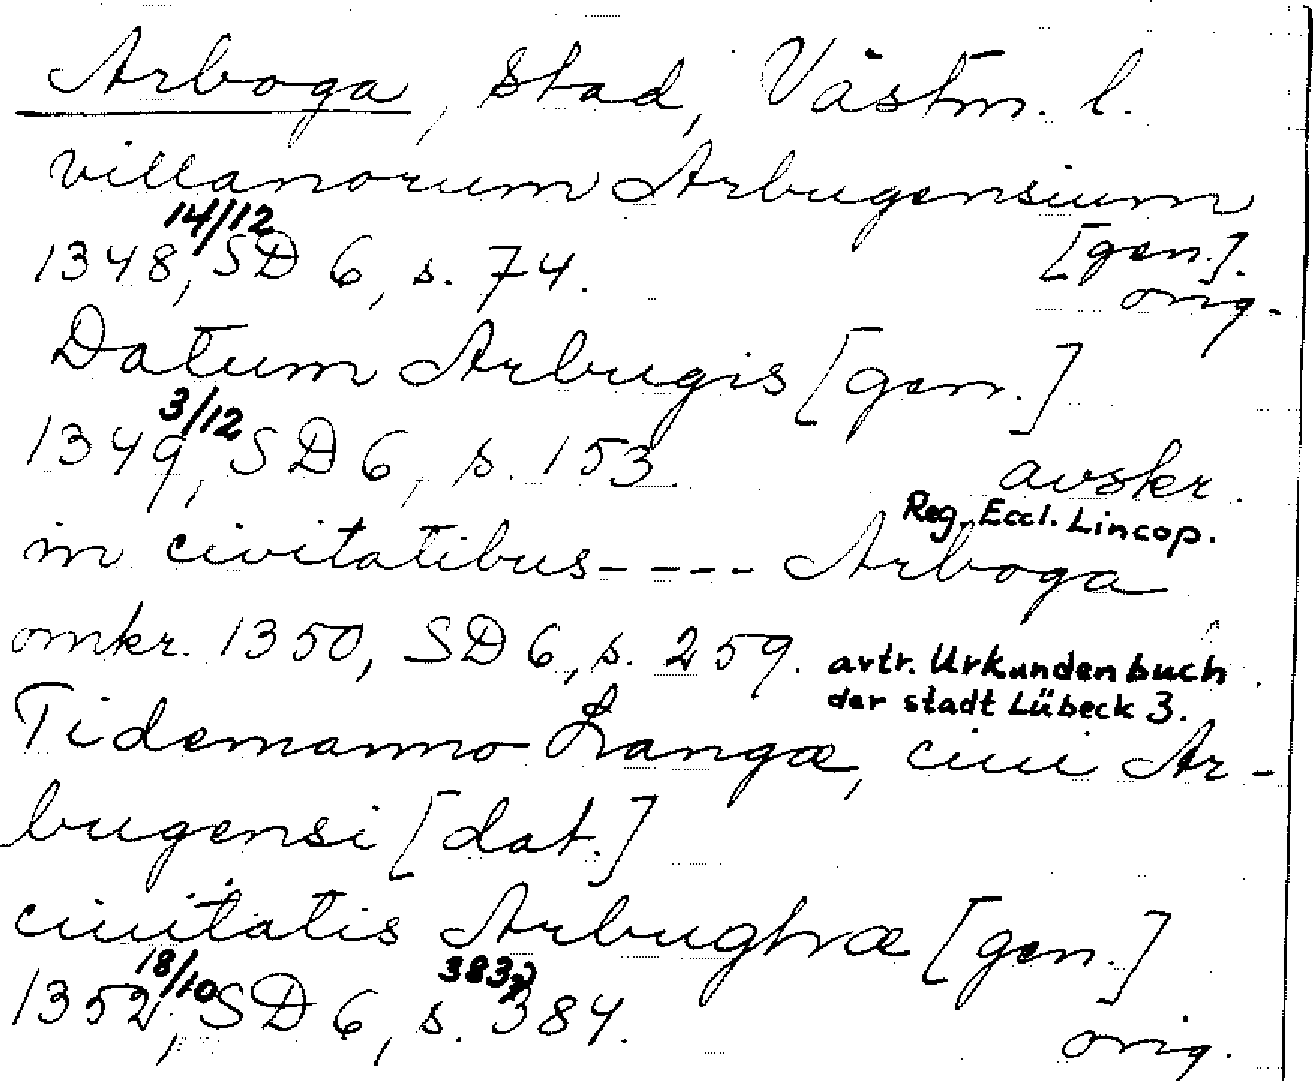 Arboga, stad, Västm. l.
villanorum Arbugensium
[gen.].
14/12
1348, SD 6, s. 74.
orig.
Datum Arbugis [gen.]
3/12
1349, SD 6, s. 153.
avskr.
Reg. Eccl. Lincop.
in civitatibus---- Arboga
omkr. 1350, SD 6, s. 259.
avtr. Urkundenbuch
der stadt Lübeck 3.
Tidemanno Langæ, ciui Ar-
bugensi [dat.]
ciuitatis Arbughæ [gen.]
18/10 383,
1352, SD 6, s. 384.
orig.